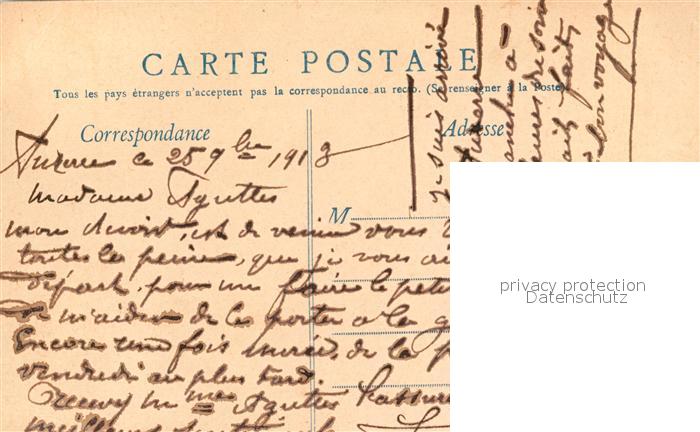 CARTE POSTALE
Tous les pays étrangers n'acceptent pas la correspondance au recto. (Se renseigner à la Poste).
Correspondance
Adresse
ce 25 9bre 1913
Madame Aguttes
mon devoir, est de venir vous
toutes les peines, que je vous ai
départ, pour me faire le petit
de m'aider de les porter a la g
Encore une fois merci, de la p
vendredi au plus tard
recevez Mme Aguttes l'assur
meilleurs
M
je suis arrivé
Auxerre
dimanche a
heures du soir
fait,
bon voyage
privacy protection
Datenschutz